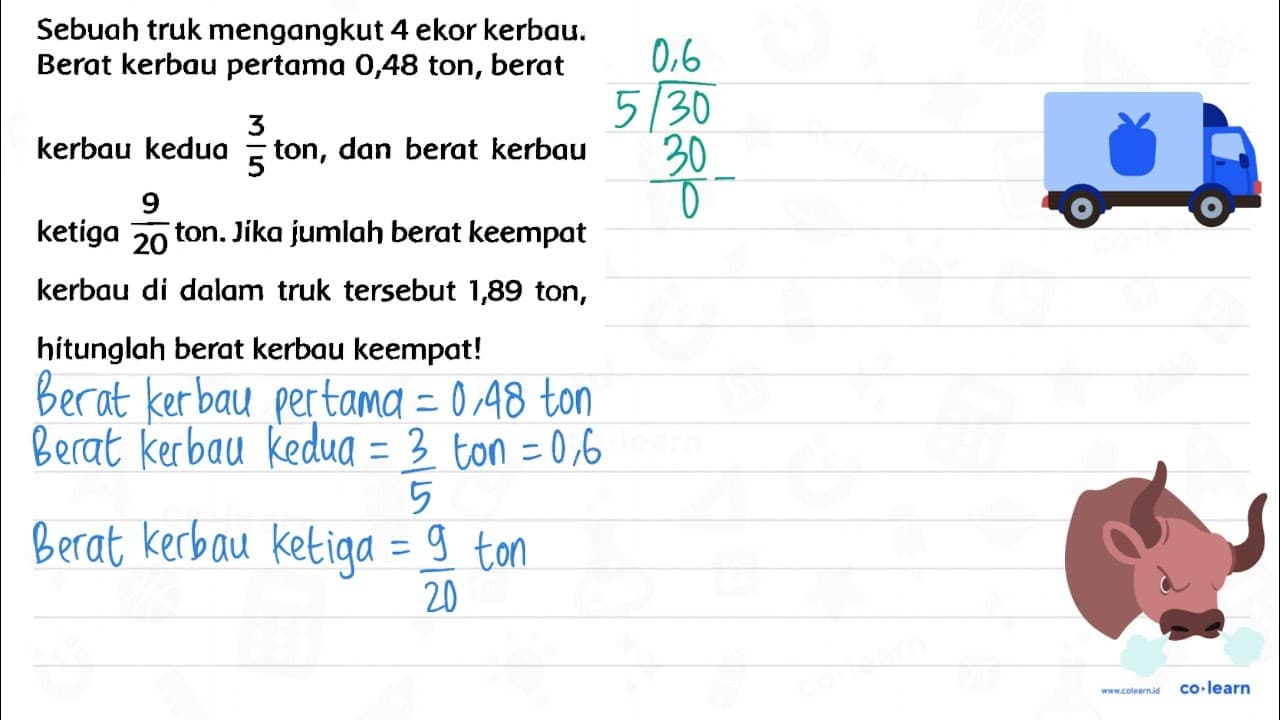 Sebuah truk mengangkut 4 ekor kerbau.
Berat kerbau pertama 0,48 ton, berat
kerbau kedua 3/5 ton, dan berat kerbau
ketiga 9/20 ton. Jika jumlah berat keempat
kerbau di dalam truk tersebut 1,89 ton,
hitunglah berat kerbau keempat!
0,6
5 / 30
30
0 -
Berat kerbau pertama = 0,48 ton
Berat kerbau kedua = 3/5 ton = 0,6
Berat kerbau ketiga = 9/20 ton
www.colearn.id co·learn